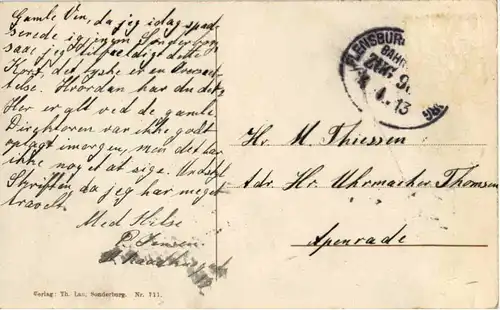 Gamle Ven, da jeg idag spad-
serede igjennem Sønderborg
saae jeg tilfældigt dette
Kort, det
Hvordan har du det?
Her er alt ved de gamle
var ikke godt
oplagt imorgen, men det har
ikke noget at sige. Undsk.
Skriften, da jeg har meget
travelt.
Med Hilse
P. Jensen
FLENSBURG
BAHNP
ZUG
13
Hr. M. Thiessen
Adr. Hr. Uhrmacher Thomsen
Apenrade
Verlag: Th. Lau, Sonderburg. Nr. 711.